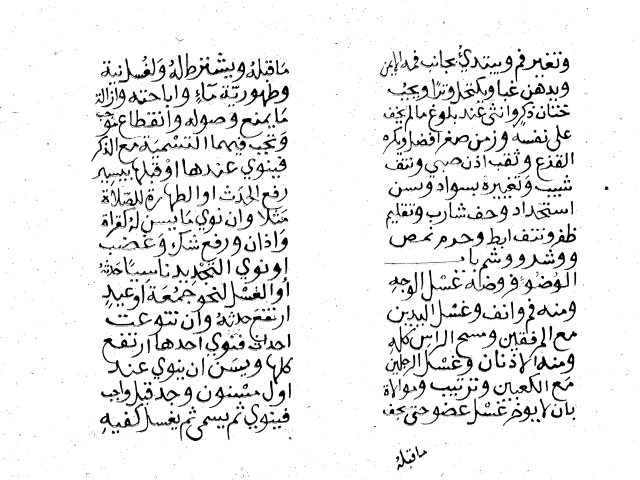 وتغير فم ويبتدئ بجانب فمه الايمن
ويدهن غبا ويكتحل وترا ويجب
ختان ذكر وانثى عند بلوغ مالم يخف
على نفسه وزمن صغر افضل ويكره
القزع وثقب اذن صبي ونتف
شيب وتغييره بسواد وسن
استحداد وحف شارب وتقليم
ظفر ونتف ابط وحرم نمص
ووشر ووشم باب
الوضوء فروضه غسل الوجه
ومنه فم وانف وغسل اليدين
مع المرفقين ومسح الراس كله
ومنه الاذنان وغسل الرجلين
مع الكعبين وترتيب وموالاة
بان لا يوخر غسل عضو حتى يجف
ماقبله
ماقبله ويشترط له ولغسل نية
وطهورية ماء واباحته وازالة
ما يمنع وصوله وانقطاع موجب
وتجب فيهما التسمية مع الذكر
فينوي عندها او قبلها بيسير
رفع الحدث او الطهارة للصلاة
مثلا وان نوي ما يسن له كقراة
واذان ورفع شك وغضب
او نوي التجديد ناسيا حدثه
او الغسل لنحو جمعة او عيد
ارتفع حدثه وان تنوعت
احداث فنوي احدها ارتفع
كلها ويسن ان ينوي عند
اول مسنون وجد قبل واجب
فينوي ثم يسمى ثم يغسل كفيه